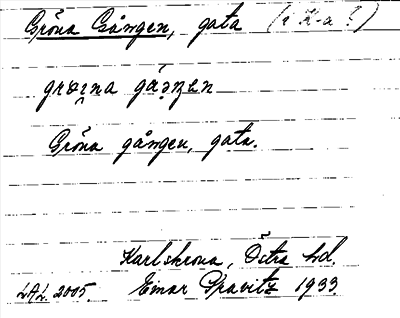 Gröna Gången, gata (i K-a?)
grøna gåŋen
Gröna gången, gata.
Karlskrona, Östra hd.
LAL. 2005. Einar Pravitz 1933.